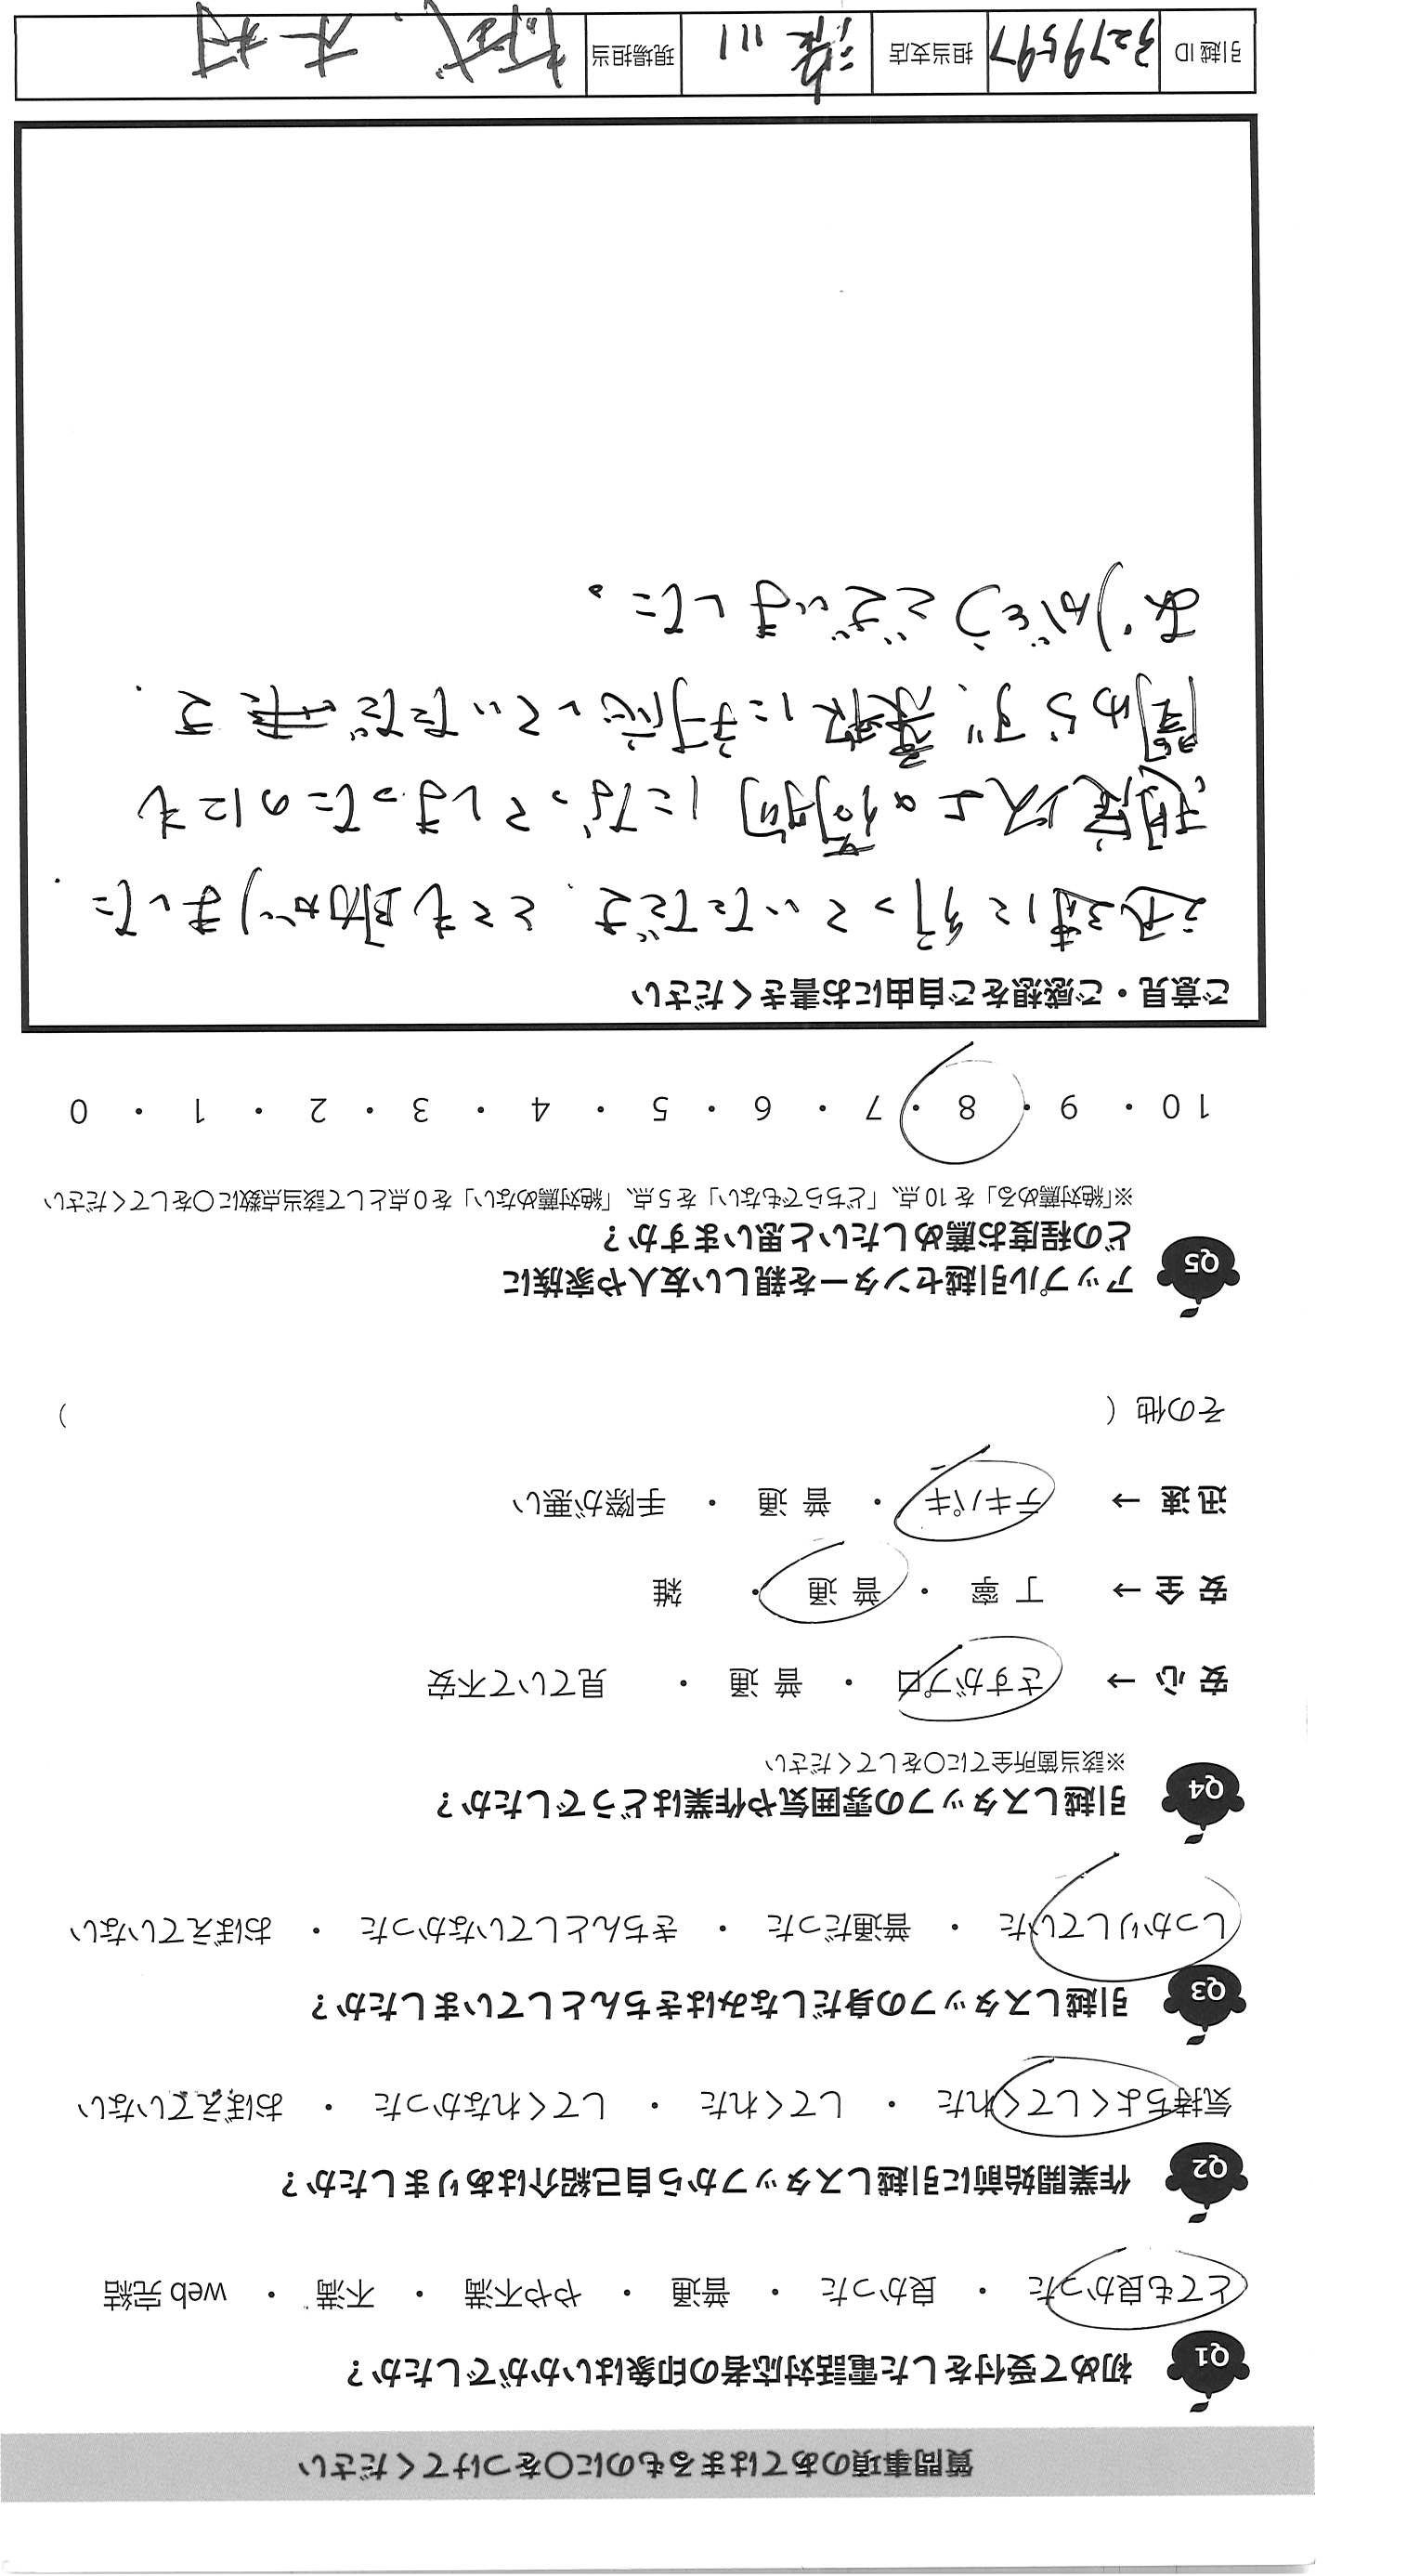 質問事項のあてはまるものに〇をつけてください
Q1 初めて受付をした電話対応者の印象はいかがでしたか？
とても良かった ・ 良かった ・ 普通 ・ やや不満 ・ 不満 ・ web 完結
Q2 作業開始前に引越しスタッフから自己紹介はありましたか？
気持ちよくしてくれた ・ してくれた ・ してくれなかった ・ おぼえていない
Q3 引越しスタッフの身だしなみはきちんとしていましたか？
しっかりしていた ・ 普通だった ・ きちんとしていなかった ・ おぼえていない
Q4 引越しスタッフの雰囲気や作業はどうでしたか？
※該当箇所全てに〇をしてください
安 心 → さすがプロ ・ 普 通 ・ 見ていて不安
安 全 → 丁 寧 ・ 普 通 ・ 雑
迅 速 → テキパキ ・ 普 通 ・ 手際が悪い
その他（ ）
Q5 アップル引越センターを親しい友人や家族に
どの程度お薦めしたいと思いますか？
※「絶対薦める」を 10 点、「どちらでもない」を 5 点、「絶対薦めない」を 0 点として該当点数に〇をしてください
10 ・ 9 ・ 8 ・ 7 ・ 6 ・ 5 ・ 4 ・ 3 ・ 2 ・ 1 ・ 0
ご意見・ご感想をご自由にお書きください
迅速に行っていただき、とても助かりました.
想定以上の荷物になってしまったのにも
関わらず、柔軟に対応していただき.
ありがとうございました。
引越 ID 3279597 担当支店 港川 現場担当 木村